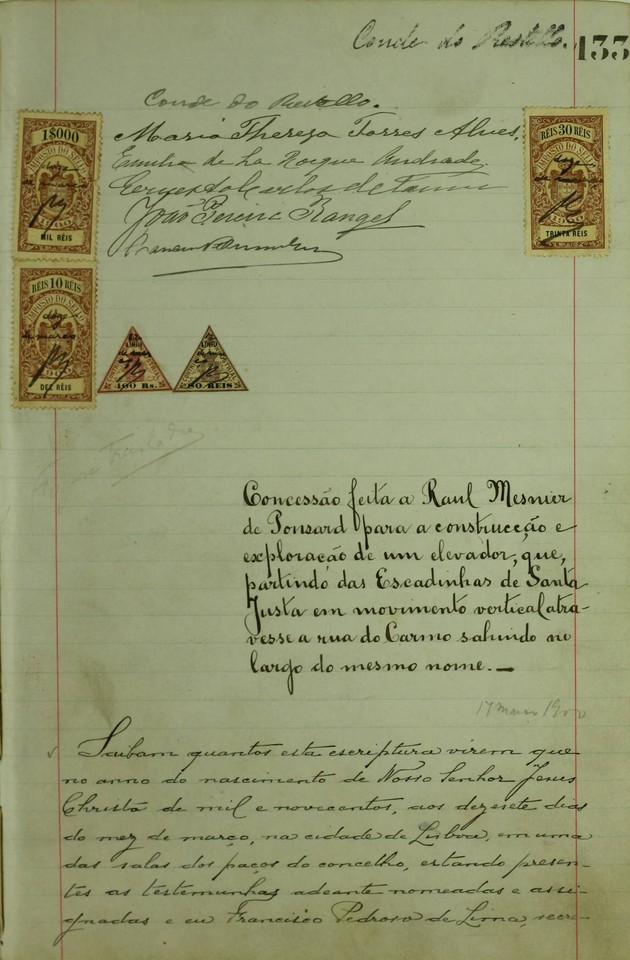 Conde do Restello.
133
Conde do Restello.
Maria Thereza Torres Alves.
Emilia de La Rocque Andrade.
Ernesto Carlos de
João Pereira Rangel
1$000
IMPOSTO DO SELLO
MIL RÉIS
RÉIS 30 RÉIS
IMPOSTO DO SELLO
TRINTA RÉIS
RÉIS 10 RÉIS
IMPOSTO DO SELLO
doze
de março
DEZ RÉIS
100 Rs.
80 RÉIS
Concessão feita a Raul Mesnier
de Ponsard para a construcção e
exploração de um elevador, que,
partindo das Escadinhas de Santa
Justa em movimento vertical atra-
vesse a rua do Carmo sahindo no
largo do mesmo nome.—
17 março 1900
Saibam quantos esta escriptura virem que
no anno do nascimento de Nosso Senhor Jesus
Christo de mil e novecentos, aos dezesete dias
do mez de março, na cidade de Lisboa, em uma
das salas dos paços do concelho, estando presen-
tes as testemunhas adeante nomeadas e assi-
gnadas e eu Francisco Pedroso de Lima, secre-